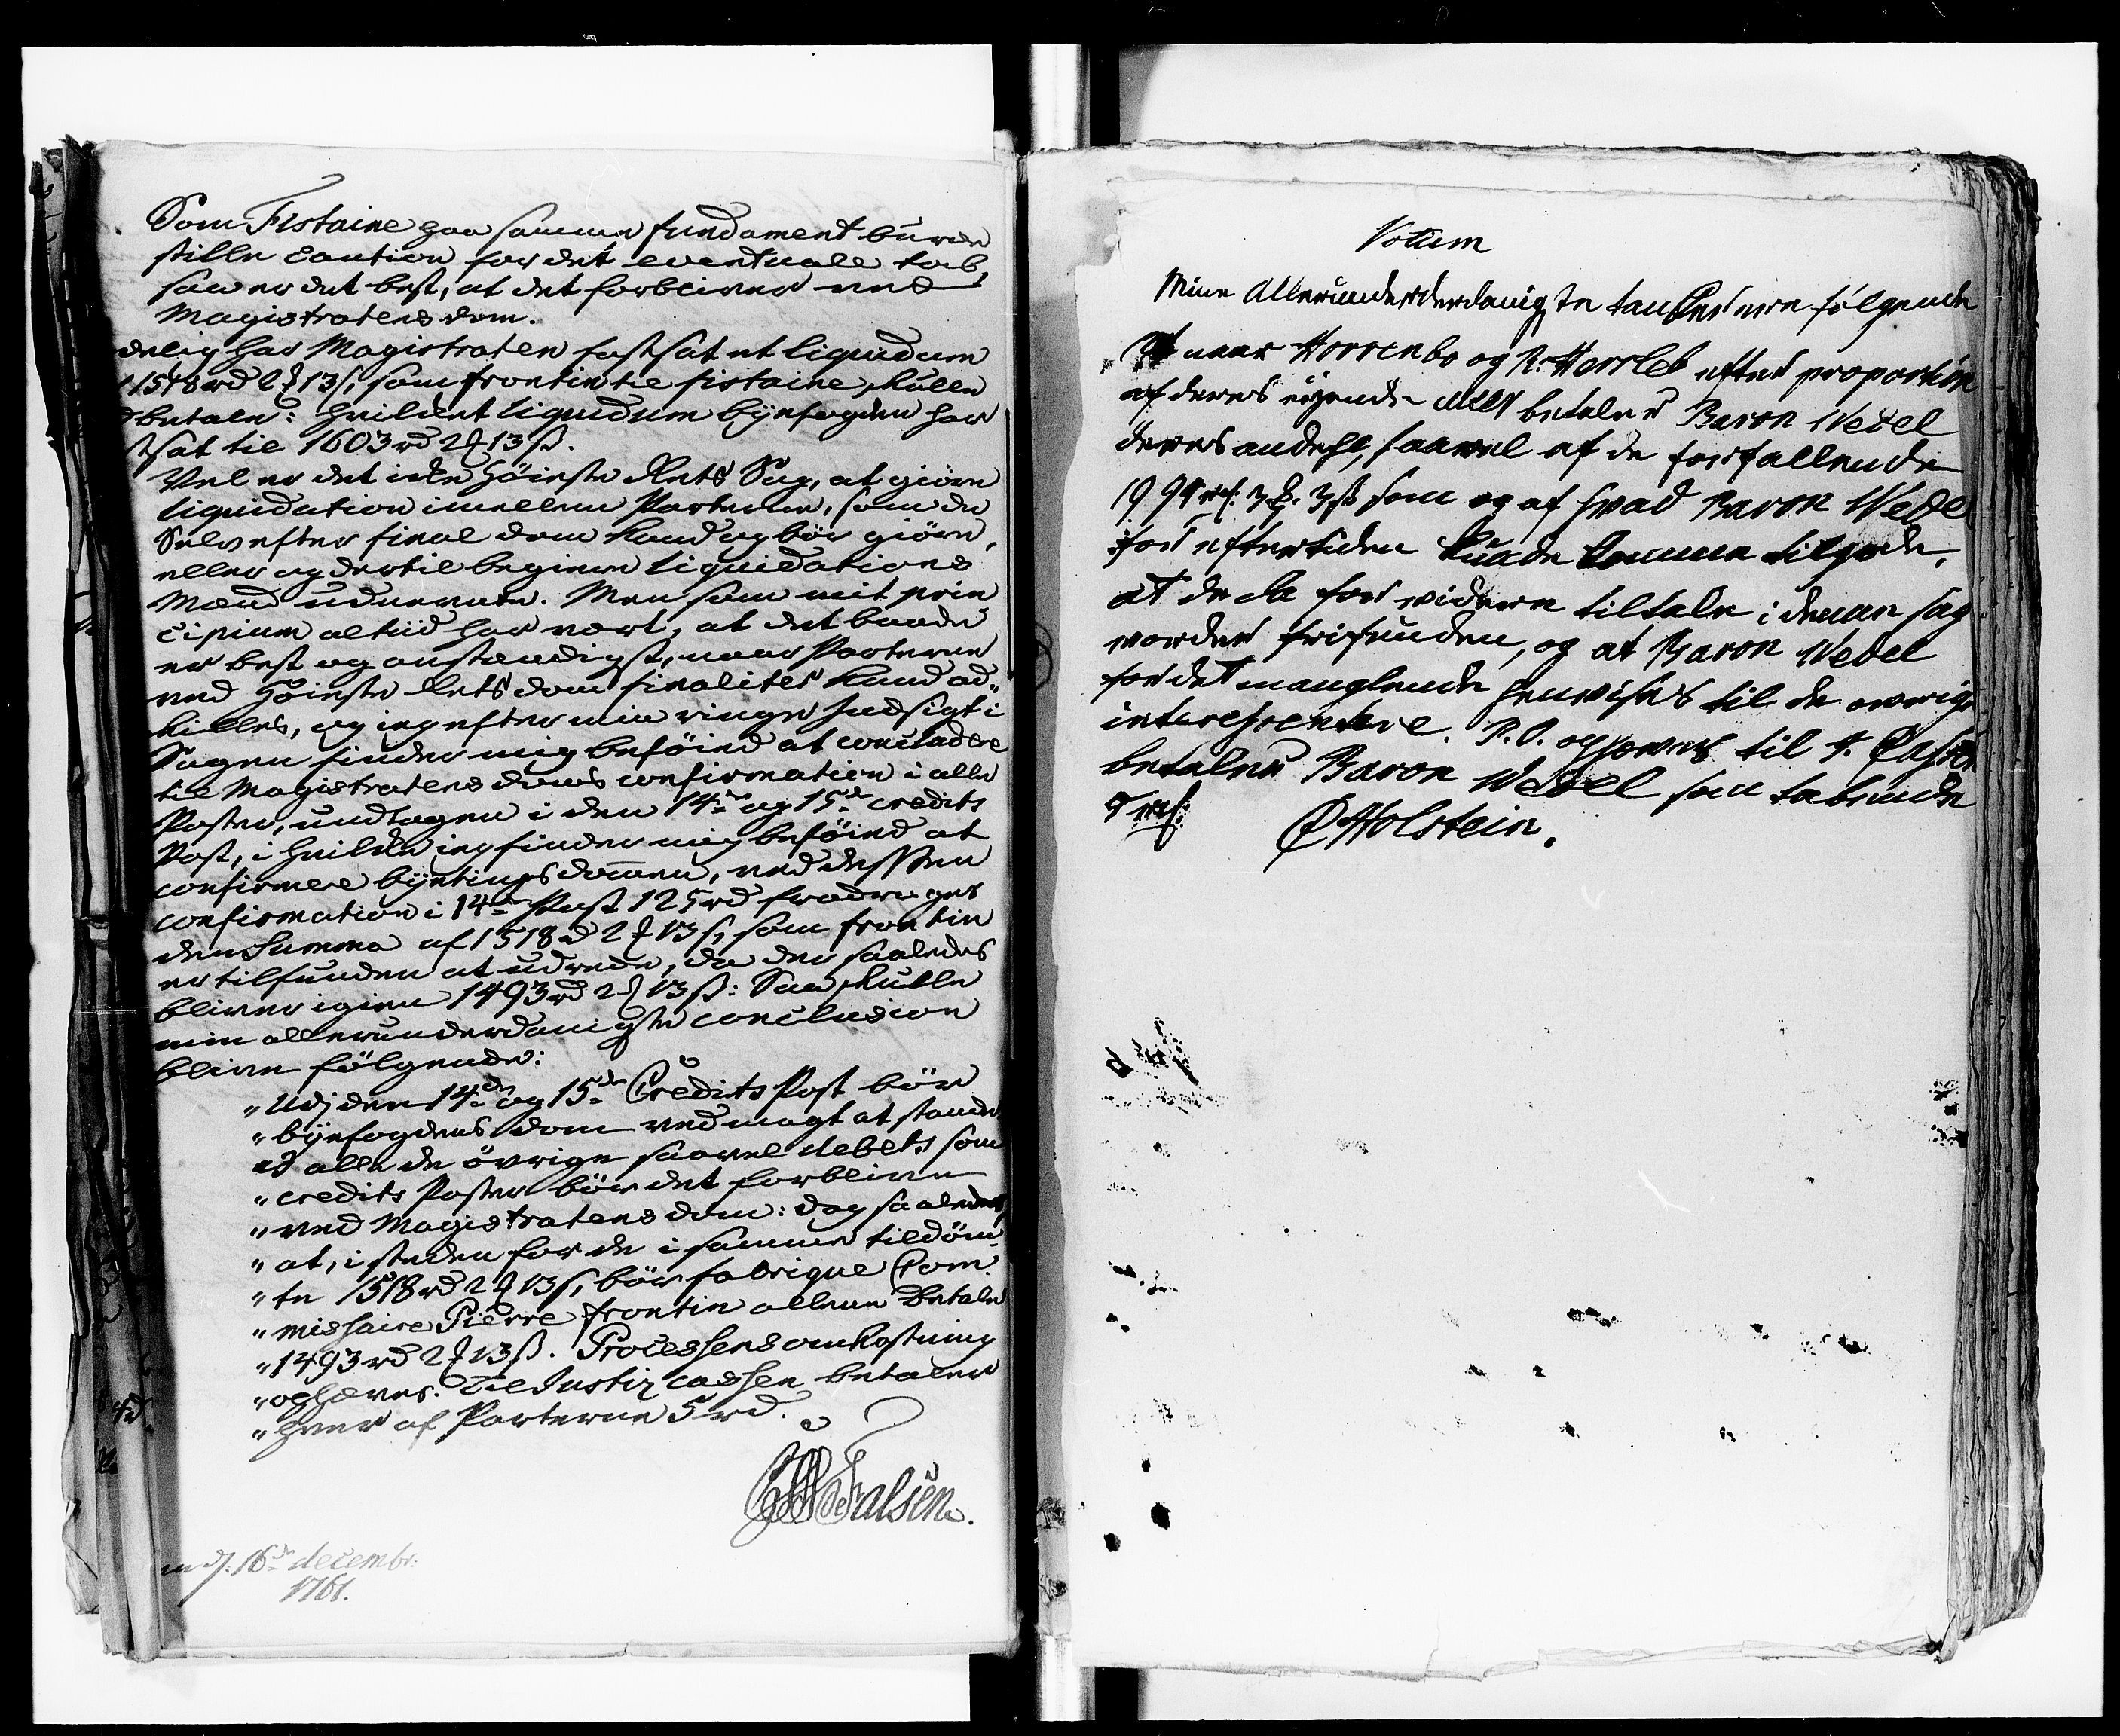 Som Fistaine paa samme fundament burde
stille Caution for det eventuelle tab,
saa er det best, at det forbliver ved
Magistratens dom.
delig har Magistraten fastsat et liquidum
1518 rd 2 ℔ 13 s, som frontin til fistaine skulle
betale: hvilket liquidum býefogden har
tsat til 1603 rd 2 ℔ 13 ß.
Vel er det icke Höieste Rets Sag, at giöre
liquidation imellem Parterne, som de
Selv efter final dom kand og bör giöre,
eller og dertil begiere liquidations
Mænd udnævnte. Men som mit prin
cipium altiid har vært, at det baade
er best og anstændigst, naar Parterne
ved Höieste Rets dom finaliter kand ad
skilles, og jeg efter min ringe Indsigt i
Sagen finder mig beföied at concludere
til Magistratens doms confirmation i alle
Poster, undtagen i den 14de og 15de credits
Post, i hvilke jeg finder mig beföied at
confirmere býetings dommen, ved dessen
confirmation i 14de Post 125 rd fradrages
den Summa af 1518 rd 2 ℔ 13 s, som frontin
er tilfunden at udrede, da der saaledes
bliver igien 1493 rd 2 ℔ 13 ß: Saa skulle
min allerunderdanigste conclusion
blive følgende:
"Udj den 14de og 15de Credits Post bör
"býefogdens dom ved magt at stande
ud alle de övrige saavel debets som
"credits Poster bör det forblive
"ved Magistratens dom: dog saaledes,
"at, i steden for de i samme tildöm
"te 1518 rd 2 ℔ 13 s, bör fabrique Com
"missaire Pierre frontin allene betale
"1493 rd 2 ℔ 13 ß. Processens omkostning
"ophæves. Til Justiz cassen betaler
"hver af Parterne 5 rd.
de Falsen.
d: 16de decembr:
1761.
Votum
Mine Allerunderdanigste tancker ere følgende
at naar Horrenbo og Herrleb efter proportion
af deres eigende betaler Baron Wedel
deres andehl, saavel af de forfallende
som og af hvad Baron Wedel
for eftertiden kunde komme tilgode,
at de da for videre tiltale i denne sag
vorder frifunden, og at Baron Wedel
for det manglende henvises til de övrige
interessentere. P. O. ophæves til J. Cassen
betaler Baron Wedel som tabende
rd:
Holstein.